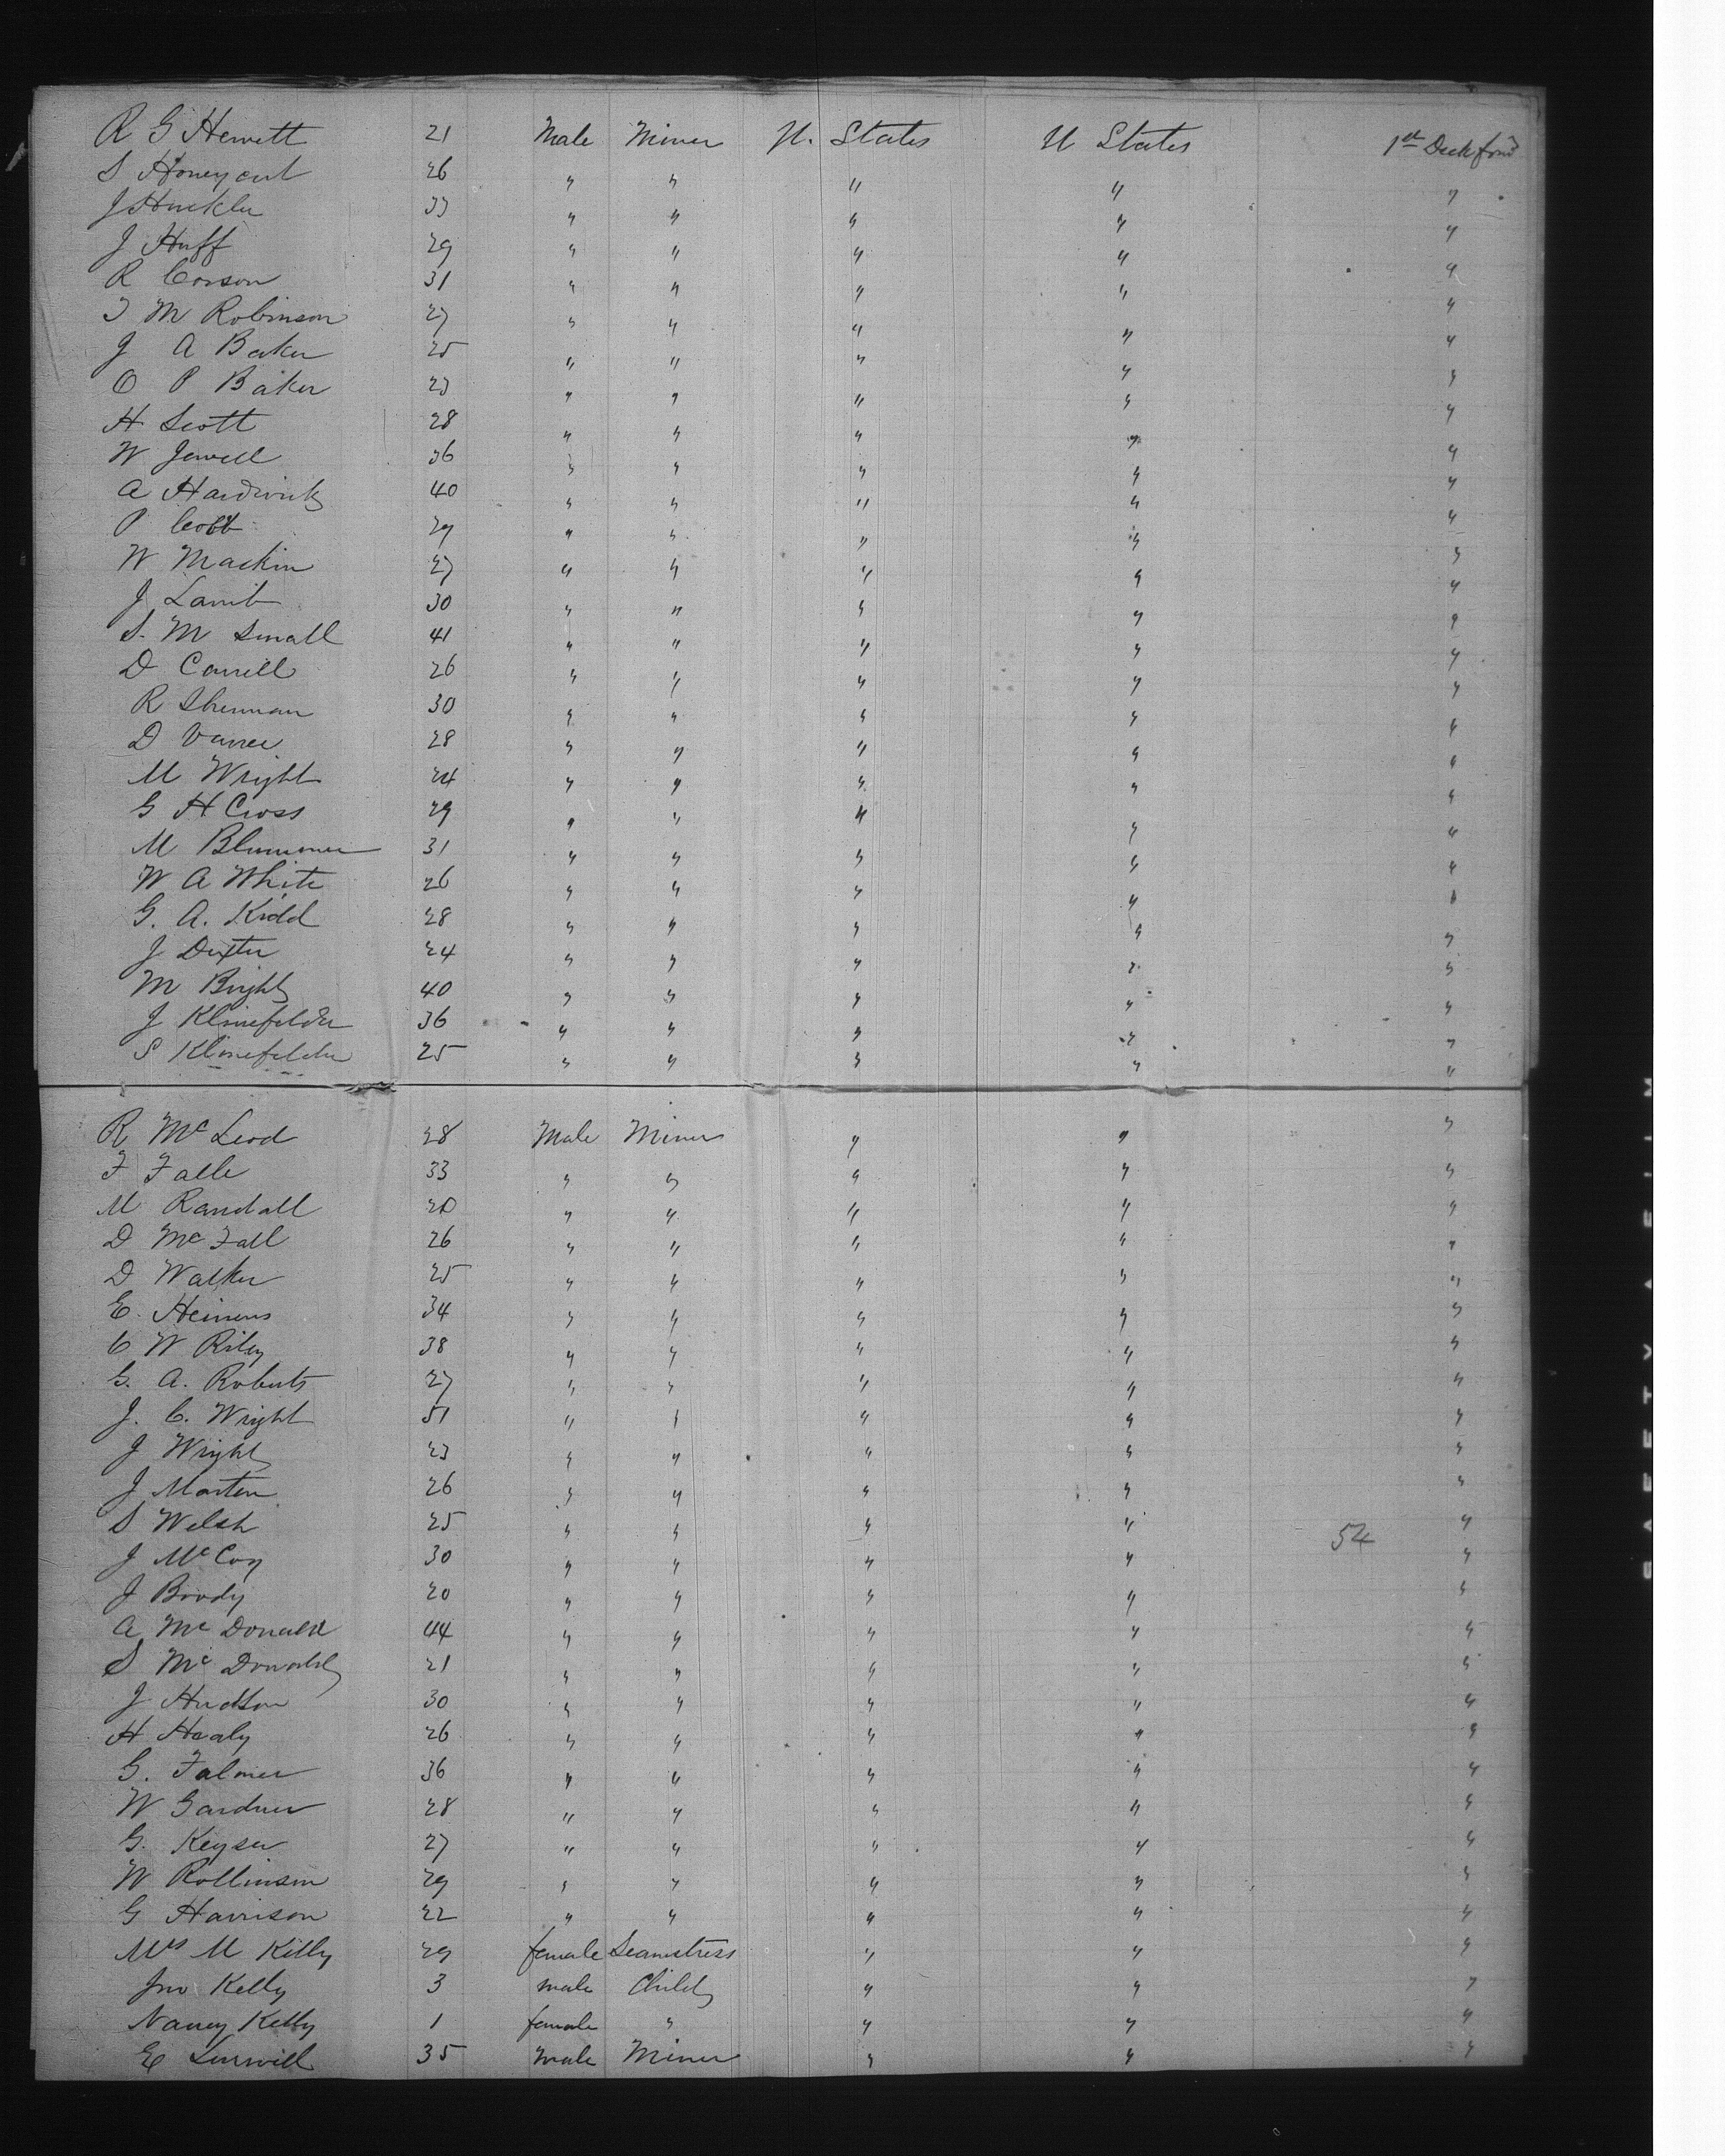 R G Hewett 21 Male Miner U. States U States 1st Deck for'd
S Honeycut 26 " " " " "
J Huckler 33 " " " " "
J Huff 29 " " " " "
R Corson 31 " " " " "
T M Robinson 27 " " " " "
J A Baker 25 " " " " "
O P Baker 23 " " " " "
H Scott 28 " " " " "
W Jewell 36 " " " " "
A Hardwick 40 " " " " "
P Cobb 29 " " " " "
W Mackin 27 " " " " "
J Lamb 30 " " " " "
S. M Small 41 " " " " "
D Carrill 26 " " " " "
R Sherman 30 " " " " "
D Vance 28 " " " " "
M Wright 24 " " " " "
G H Cross 29 " " " " "
M Blummer 31 " " " " "
W A White 26 " " " " "
G. A. Kidd 28 " " " " "
J Dexter 24 " " " " "
M Bright 40 " " " " "
J Klinefelder 36 " " " " "
S Klinefelder 25 " " " " "
R McLeod 28 Male Miner " " "
F Falle 33 " " " " "
M Randall 20 " " " " "
D McFall 26 " " " " "
D Walker 25 " " " " "
E. 34 " " " " "
C W Riley 38 " " " " "
G. A. Roberts 27 " " " " "
J. C. Wright 51 " " " " "
J Wright 23 " " " " "
J Marten 26 " " " " "
S Welsh 25 " " " " "
54
J McCoy 30 " " " " "
J Brody 20 " " " " "
A McDonald 44 " " " " "
S McDonald 21 " " " " "
J Hudson 30 " " " " "
H Healy 26 " " " " "
G. Falmer 36 " " " " "
W Gardner 28 " " " " "
G. Keyser 27 " " " " "
W Rollinson 29 " " " " "
G Harrison 22 " " " " "
Mrs M Kelly 29 female Seamstress " " "
Jno Kelly 3 male Child " " "
Nancy Kelly 1 female " " " "
E 35 Male Miner " " "